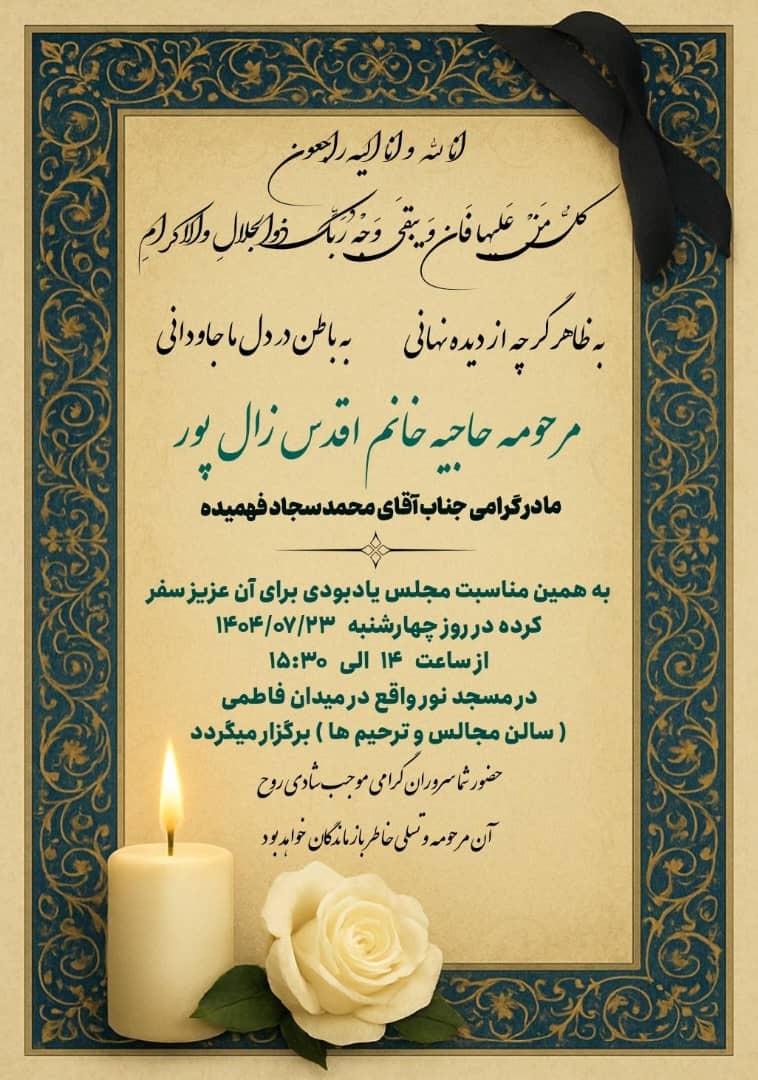 انا لله و انا الیه راجعون
کُلُّ مَنْ عَلیها فَان وَ یبقیَ وَجْه رَبِّکَ ذوالجَلالِ والاکرامِ
به ظاهر گرچه از دیده نهانی به باطن در دل ما جاودانی
مرحومه حاجیه خانم اقدس زال پور
مادر گرامی جناب آقای محمد سجاد فهمیده
به همین مناسبت مجلس یادبودی برای آن عزیز سفر
کرده در روز چهارشنبه ۱۴۰۴/۰۷/۲۳
از ساعت ۱۴ الی ۱۵:۳۰
در مسجد نور واقع در میدان فاطمی
( سالن مجالس و ترحیم ها ) برگزار میگردد
حضور شما سروران گرامی موجب شادی روح
آن مرحومه و تسلی خاطر بازماندگان خواهد بود